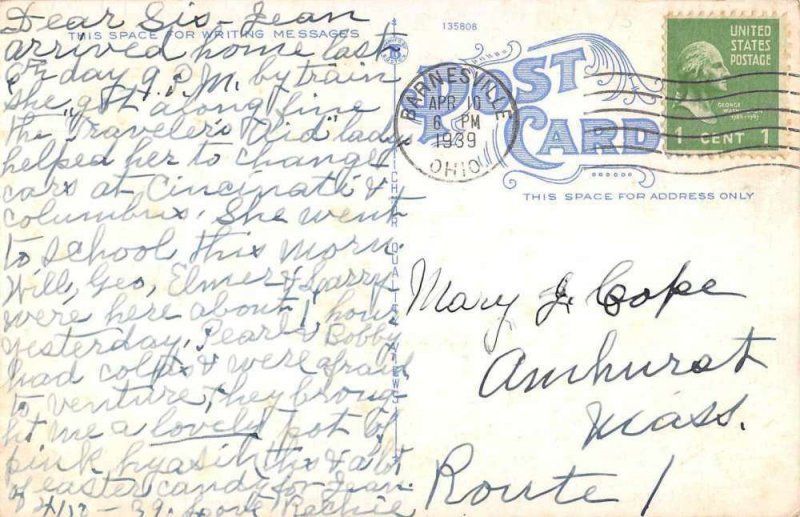 Dear Sis - Jean
THIS SPACE FOR WRITING MESSAGES
arrived home last
day 9 P.M. by train
she got along fine
the "Traveler's Aid" lady
helped her to change
cars at Cincinati &
columbus. She went
to school this morn.
Will, Geo, Elmer & Larry
were here about 1 hour
yesterday, Pearl & Bobby
had colds & were afraid
to venture, they broug-
ht me a lovely pot of
pink hyasinths & a lot
of easter candy for Jean.
4/10 - 39. Love
135808
POST
CARD
BARNESVILLE
APR 10
6 PM
1939
OHIO
UNITED
STATES
POSTAGE
GEORGE
1 CENT 1
THIS SPACE FOR ADDRESS ONLY
Mary J. Cope
Amhurst
Mass.
Route 1